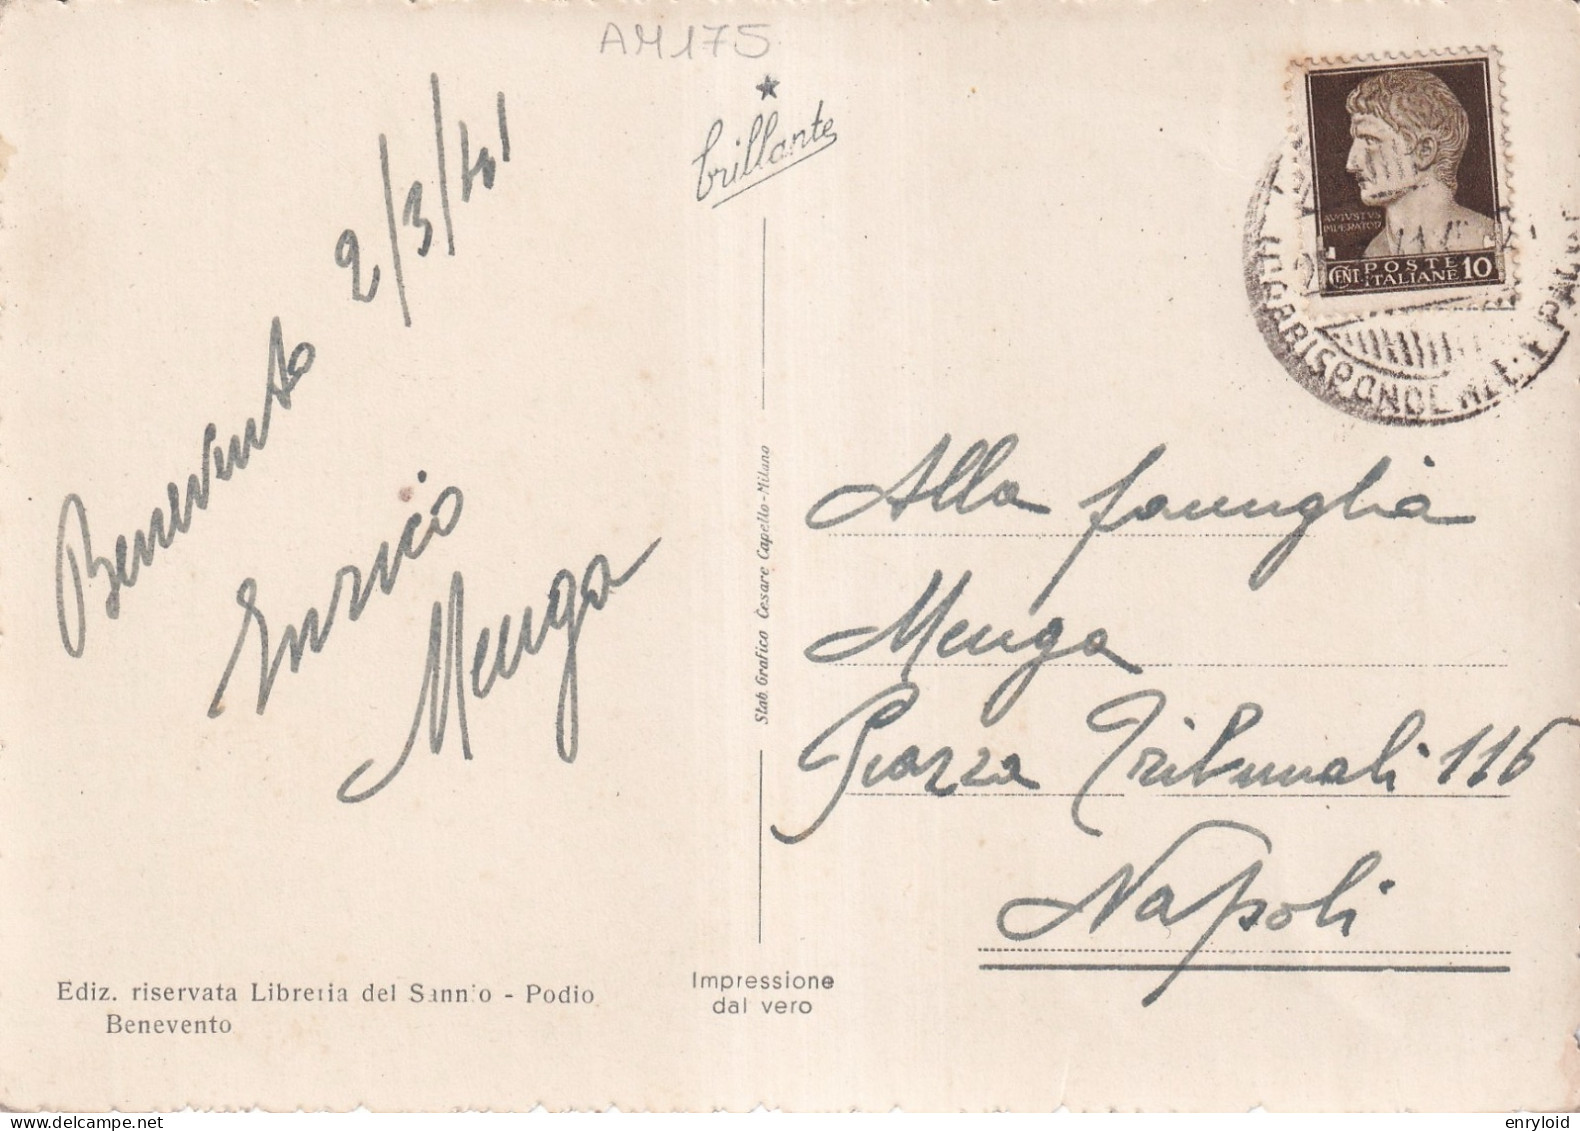 AM175
brillante
Benevento 2/3/41
Enrico
Menga
Stab. Grafico Cesare Capello-Milano
AVGVSTVS
IMPERATOR
CENT. POSTE ITALIANE 10
Alla famiglia
Menga
Piazza Tribunali 116
Napoli
Ediz. riservata Libreria del Sannio - Podio
Benevento
Impressione
dal vero
delcampe.net
enryloid